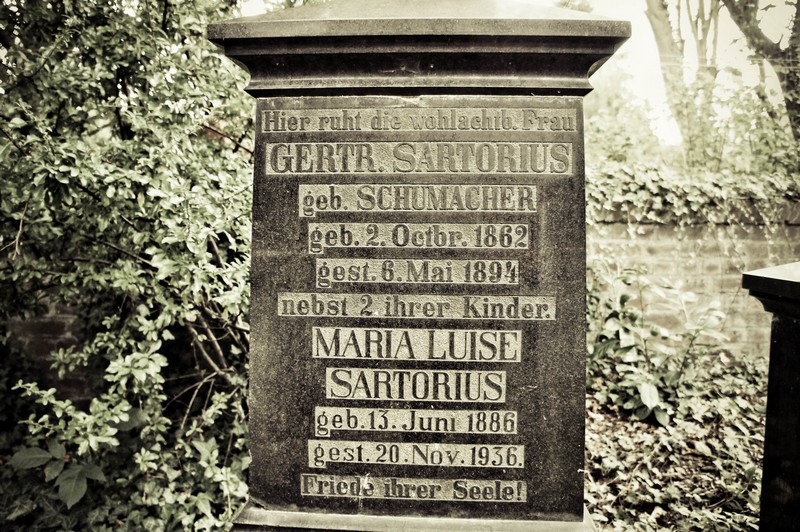 Hier ruht die wohlachtb. Frau
GERTR. SARTORIUS
geb. SCHUMACHER
geb. 2. Octbr. 1862
gest. 6. Mai 1894
nebst 2 ihrer Kinder.
MARIA LUISE
SARTORIUS
geb. 13. Juni 1886
gest. 20. Nov. 1936.
Friede ihrer Seele!